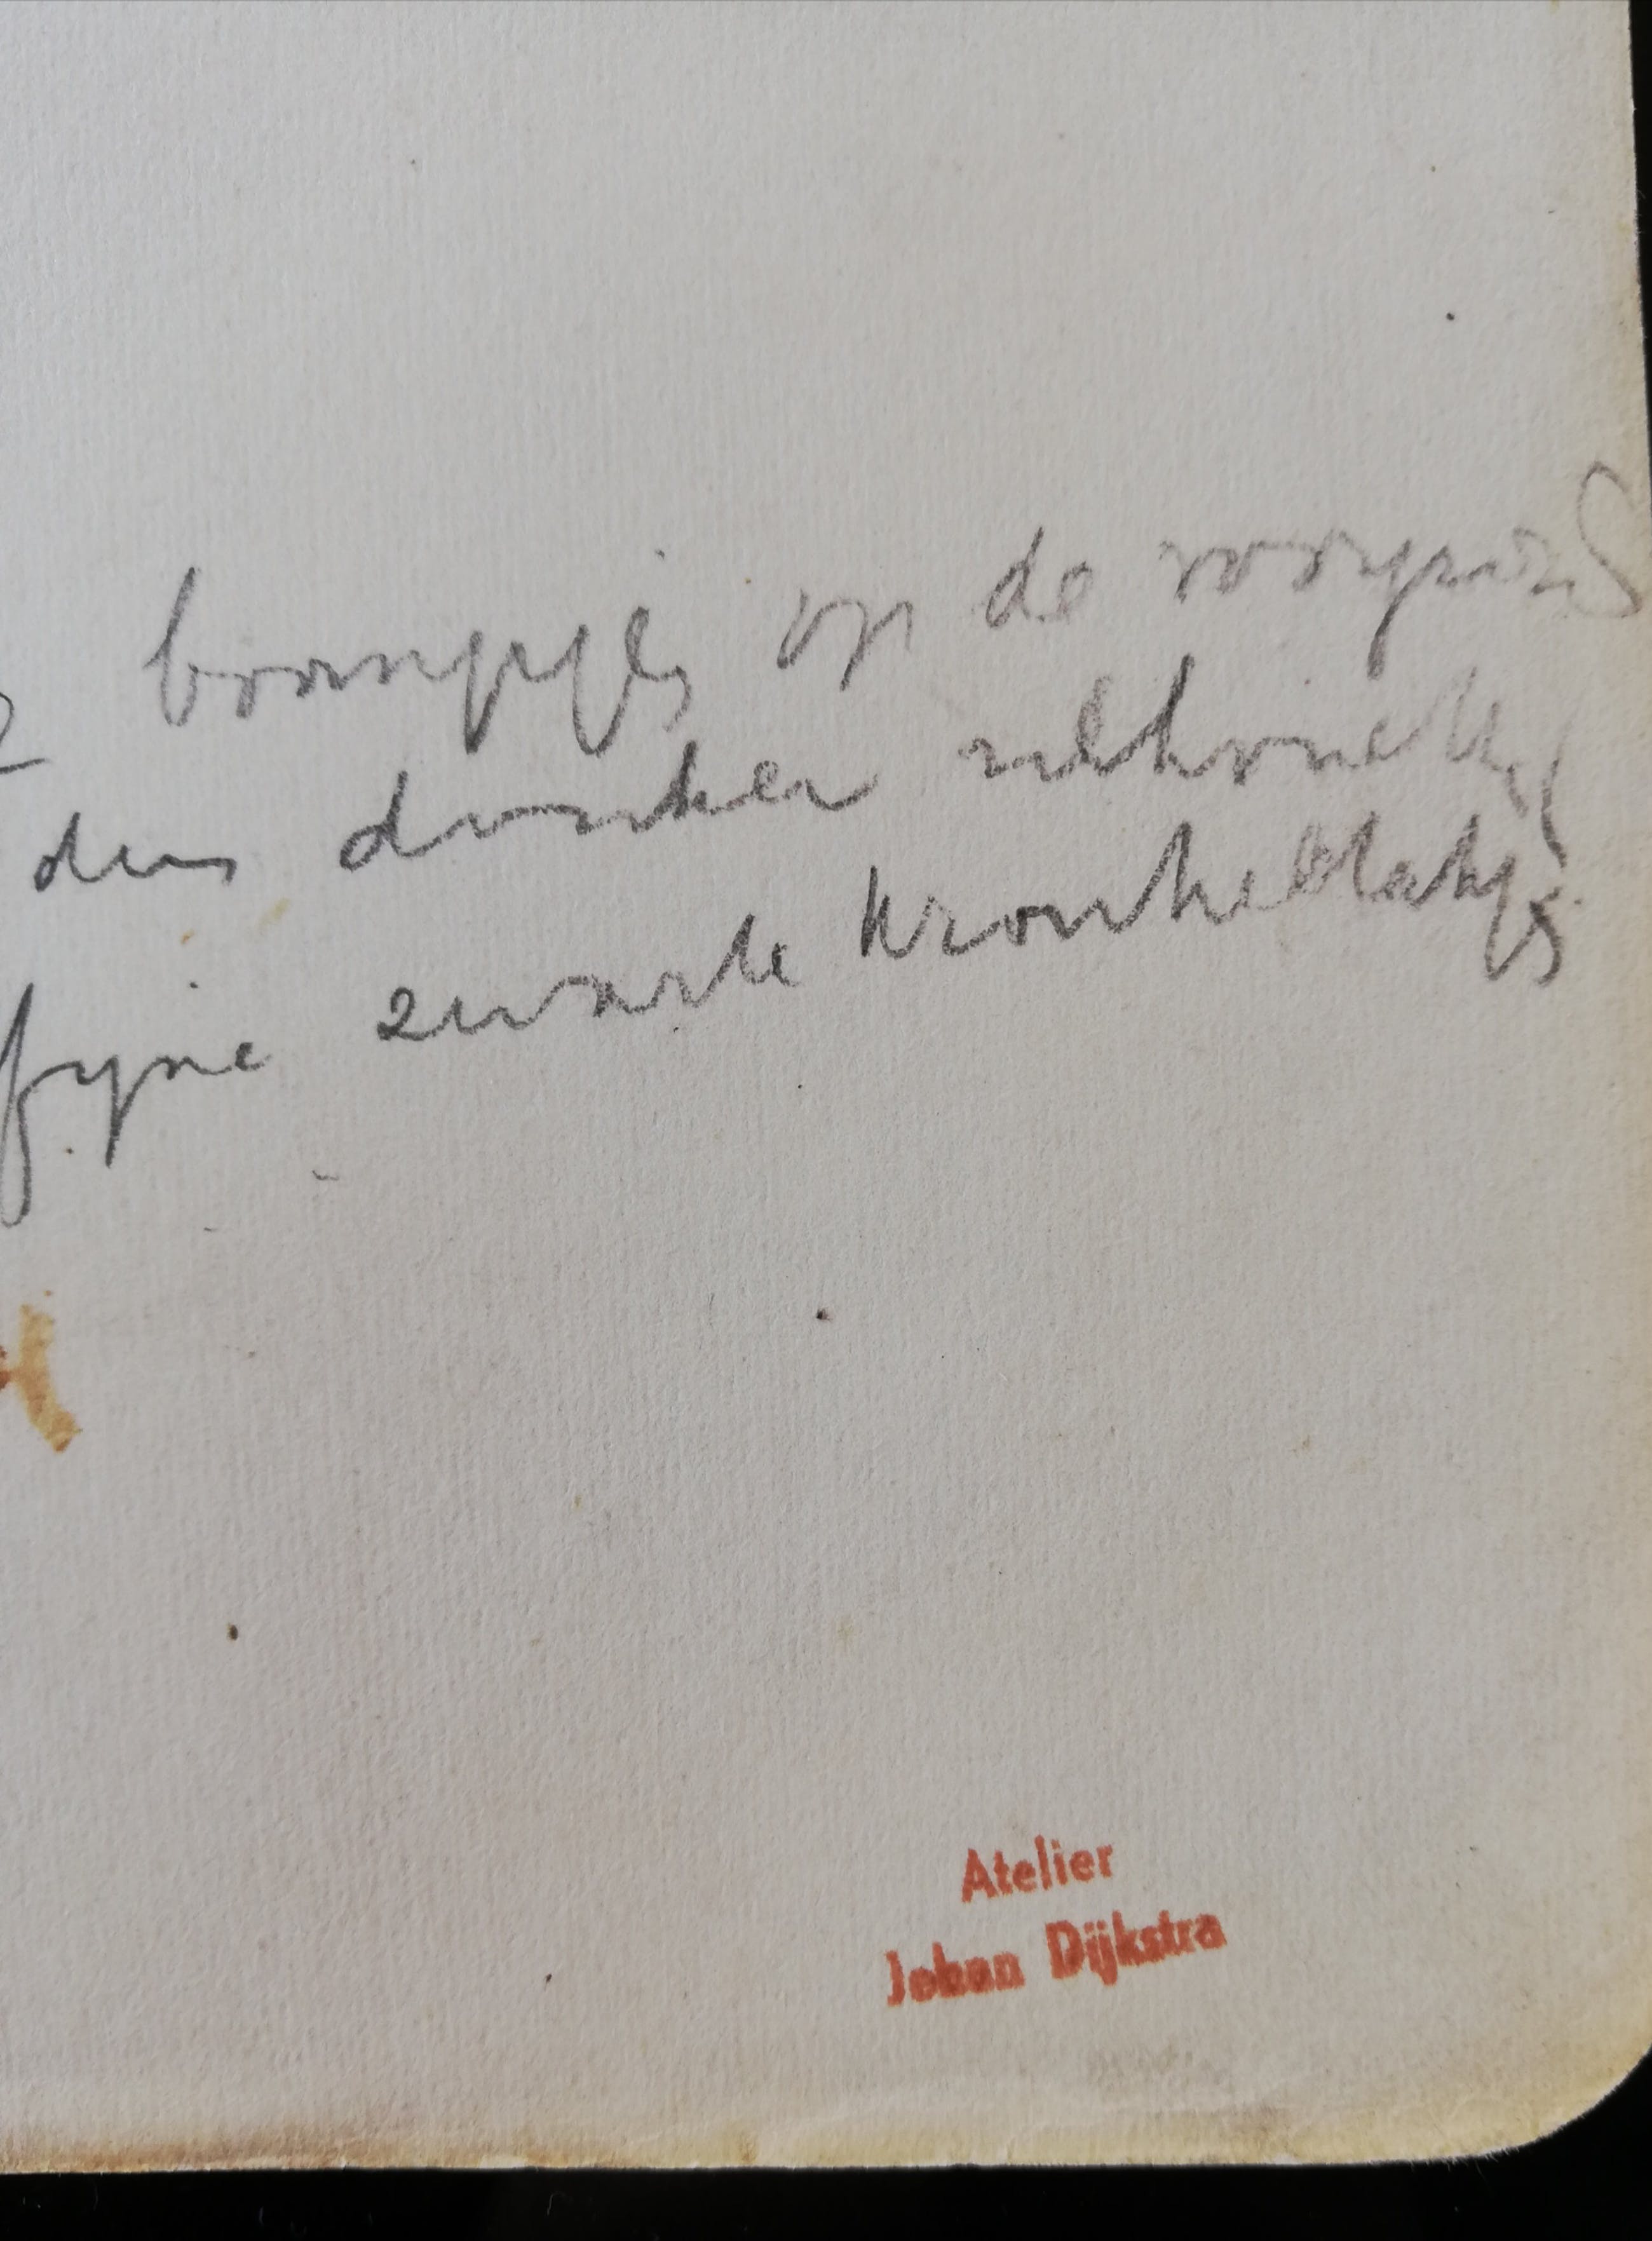 boompjes op de voorgrond
dus donker
fyne zwarte kronkeltakjes
Atelier
Johan Dijkstra